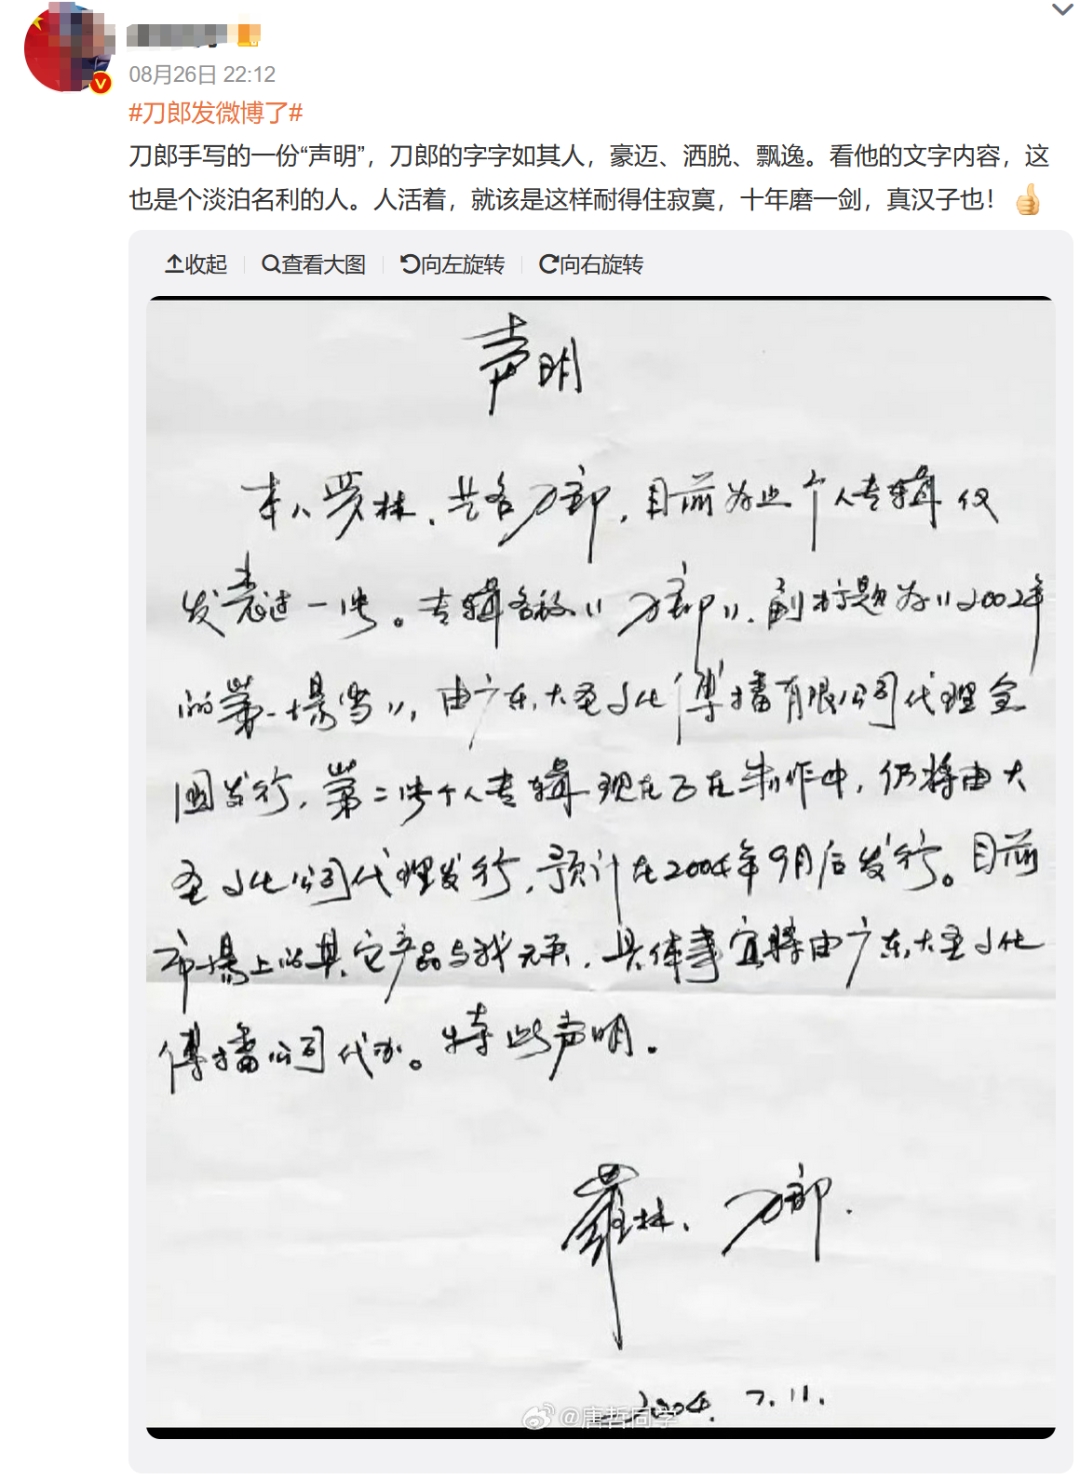 08月26日 22:12
#刀郎发微博了#
刀郎手写的一份“声明”，刀郎的字字如其人，豪迈、洒脱、飘逸。看他的文字内容，这
也是个淡泊名利的人。人活着，就该是这样耐得住寂寞，十年磨一剑，真汉子也！
收起 查看大图 向左旋转 向右旋转
声明
本人罗林、艺名刀郎，目前为止个人专辑仅
发表过一张。专辑名称“刀郎”，副标题为“2002年
的第一场雪”，由广东大圣文化傳播有限公司代理全
国发行，第二张个人专辑现在正在制作中，仍将由大
圣文化公司代理发行，预计在2004年9月后发行。目前
市场上的其它产品与我无关，具体事宜将由广东大圣文化
傳播公司代办。特此声明。
羅林、刀郎.
2004. 7.11.
@唐哲同学